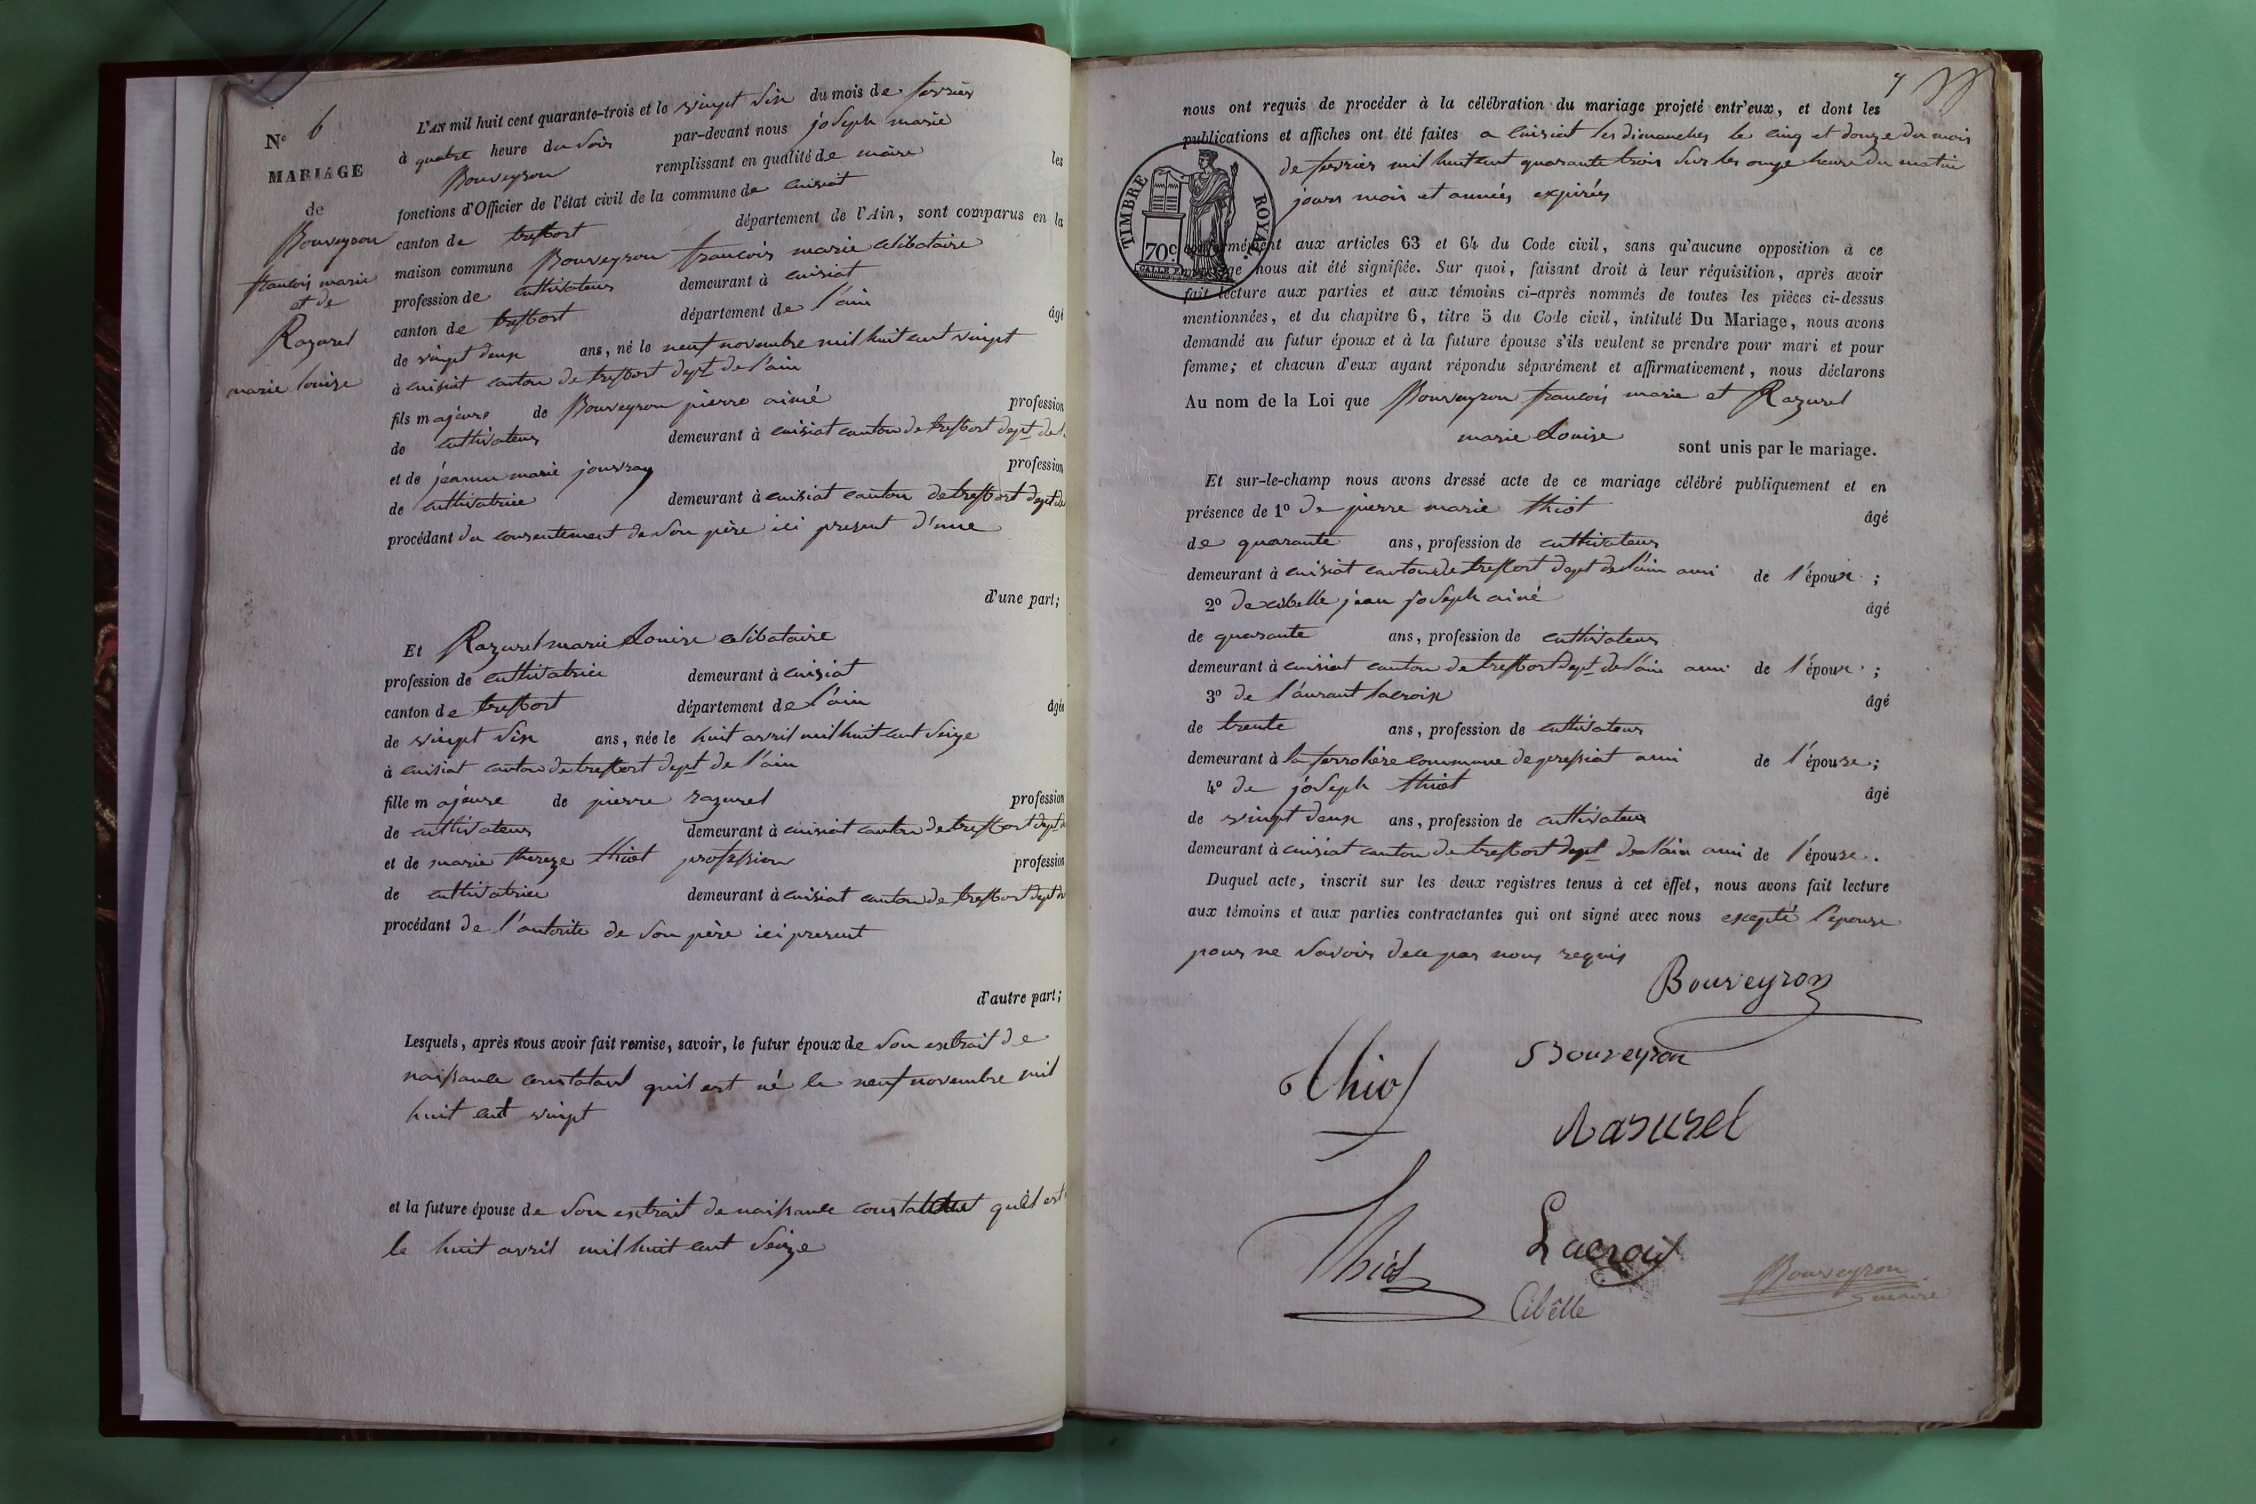 N° 6
MARIAGE
de
Bouveyron
francois marie
et de
Razurel
marie louise
L'AN mil huit cent quarante-trois et le vingt six du mois de fevrier
à quatre heure du soir par-devant nous joseph marie
Bouveyron remplissant en qualité de maire les
fonctions d'Officier de l'état civil de la commune de cuisiat
canton de treffort département de l'Ain, sont comparus en la
maison commune Bouveyron francois marie celibataire
profession de cultivateur demeurant à cuisiat
canton de treffort département de l'ain âgé
de vingt deux ans, né le neuf novembre mil huit cent vingt
à cuisiat canton de treffort dept de l'ain
fils majeure de Bouveyron pierre aimé profession
de cultivateur demeurant à cuisiat canton de treffort dept de l
et de jeanne marie jouvray profession
de cultivatrice demeurant à cuisiat canton de treffort dept de
procédant du consentement de son père ici present d'une
d'une part;
Et Razurel marie Louise celibataire
profession de cultivatrice demeurant à cuisiat
canton de treffort département de l'ain âgée
de vingt six ans, née le huit avril mil huit cent seize
à cuisiat canton de treffort dept de l'ain
fille majeure de pierre razurel profession
de cultivateur demeurant à cuisiat canton de treffort dept de
et de marie thereze thiot profession profession
de cultivatrice demeurant à cuisiat canton de treffort dept de
procédant de l'autorite de son père ici present
d'autre part;
Lesquels, après nous avoir fait remise, savoir, le futur époux de son extrait de
naissance constatant quil est né le neuf novembre mil
huit cent vingt
et la future épouse de son extrait de naissance constatant quel est
le huit avril mil huit cent seize
7
nous ont requis de procéder à la célébration du mariage projeté entr'eux, et dont les
publications et affiches ont été faites a cuisiat les dimanches le cinq et douze du mois
de fevrier mil huit cent quarante trois sur les onze heure du matin
jours mois et années expirés
TIMBRE ROYAL.
70c
conformément aux articles 63 et 64 du Code civil, sans qu'aucune opposition à ce
mariage nous ait été signifiée. Sur quoi, faisant droit à leur réquisition, après avoir
fait lecture aux parties et aux témoins ci-après nommés de toutes les pièces ci-dessus
mentionnées, et du chapitre 6, titre 5 du Code civil, intitulé Du Mariage, nous avons
demandé au futur époux et à la future épouse s'ils veulent se prendre pour mari et pour
femme; et chacun d'eux ayant répondu séparément et affirmativement, nous déclarons
Au nom de la Loi que Bouveyron francois marie et Razurel
marie Louise sont unis par le mariage.
Et sur-le-champ nous avons dressé acte de ce mariage célébré publiquement et en
présence de 1° De pierre marie thiot âgé
de quarante ans, profession de cultivateur
demeurant à cuisiat canton de treffort dept de l'ain ami de l'époux ;
2° De cibelle jean joseph ainé âgé
de quarante ans, profession de cultivateur
demeurant à cuisiat canton de treffort dept de l'ain ami de l'époux ;
3° de l'aurant lacroix âgé
de trente ans, profession de cultivateur
demeurant à la ferrolière commune de pressiat ami de l'épouse ;
4° de joseph thiot âgé
de vingt deux ans, profession de cultivateur
demeurant à cuisiat canton de treffort dept de l'ain ami de l'épouse.
Duquel acte, inscrit sur les deux registres tenus à cet effet, nous avons fait lecture
aux témoins et aux parties contractantes qui ont signé avec nous excepté l'épouse
pour ne savoir de ce par nous requis
Bouveyron
Thiot
Bouveyron
Rasurel
Thiot
Lacroix
Cibelle
Bouveyron
maire